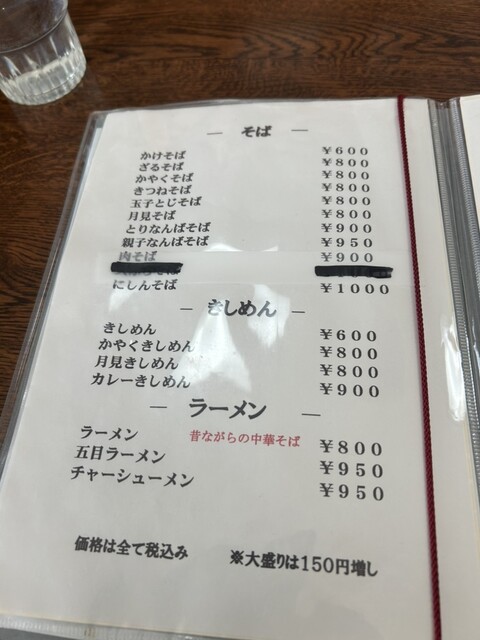 ― そば ―
かけそば ￥600
ざるそば ￥800
かやくそば ￥800
きつねそば ￥800
玉子とじそば ￥800
月見そば ￥800
とりなんばそば ￥900
親子なんばそば ￥950
肉そば ￥900
にしんそば ￥1000
― きしめん ―
きしめん ￥600
かやくきしめん ￥800
月見きしめん ￥800
カレーきしめん ￥900
― ラーメン ―
ラーメン 昔ながらの中華そば ￥800
五目ラーメン ￥950
チャーシューメン ￥950
価格は全て税込み ※大盛りは150円増し